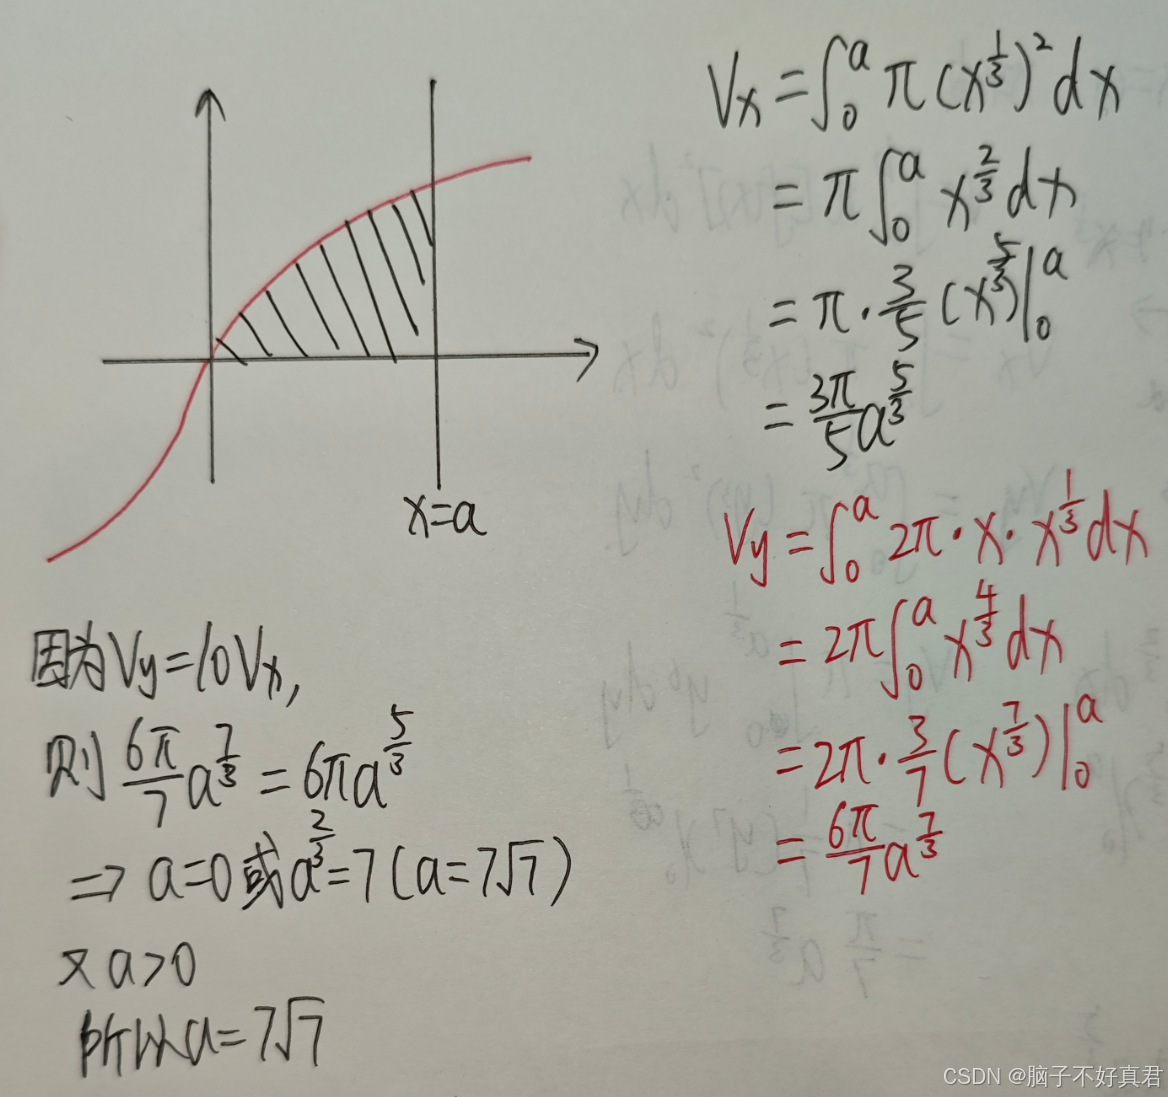 x=a
Vx=∫₀ᵃ π(x^{1/3})²dx
=π∫₀ᵃ x^{2/3}dx
=π·3/5(x^{5/3})|₀ᵃ
=3π/5 a^{5/3}
Vy=∫₀ᵃ 2π·x·x^{1/3}dx
=2π∫₀ᵃ x^{4/3}dx
=2π·3/7(x^{7/3})|₀ᵃ
=6π/7 a^{7/3}
因为Vy=10Vx,
则 6π/7 a^{7/3}=6πa^{5/3}
⇒ a=0或a^{2/3}=7(a=7√7)
又a>0
所以a=7√7
CSDN @脑子不好真君